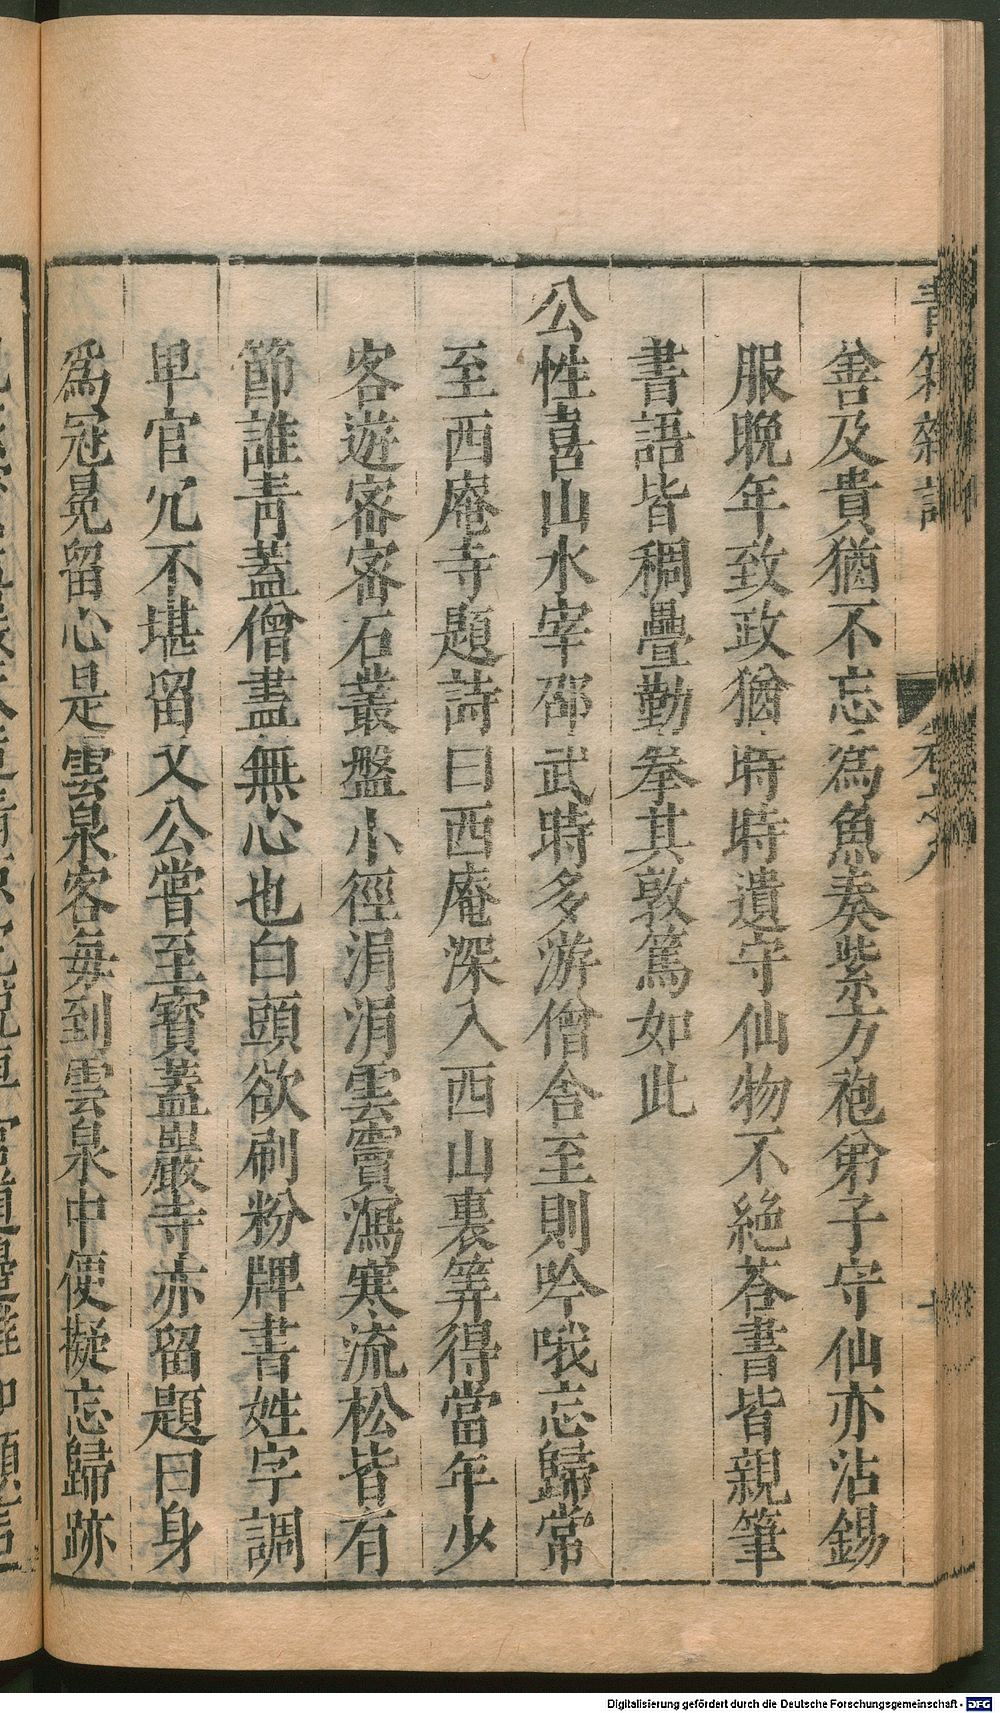 善及貴猶不忘爲魚奏紫方袍弟子守仙亦沾錫
服晚年致政猶時時遺守仙物不絶荅書皆親筆
書語皆稠疊勤拳其敦篤如此
公性喜山水宰邵武時多游僧舍至則吟哦忘歸常
至西庵寺題詩曰西庵深入西山裏筭得當年少
客遊密密石叢盤小徑涓涓雲竇瀉寒流松皆有
節誰青蓋僧盡無心也白頭欲刷粉牌書姓字調
卑官冗不堪留又公嘗至寳蓋巖寺亦留題曰身
爲冠冕留心是雲泉客每到雲泉中便擬忘歸跡
Digitalisierung gefördert durch die Deutsche Forschungsgemeinschaft - DFG